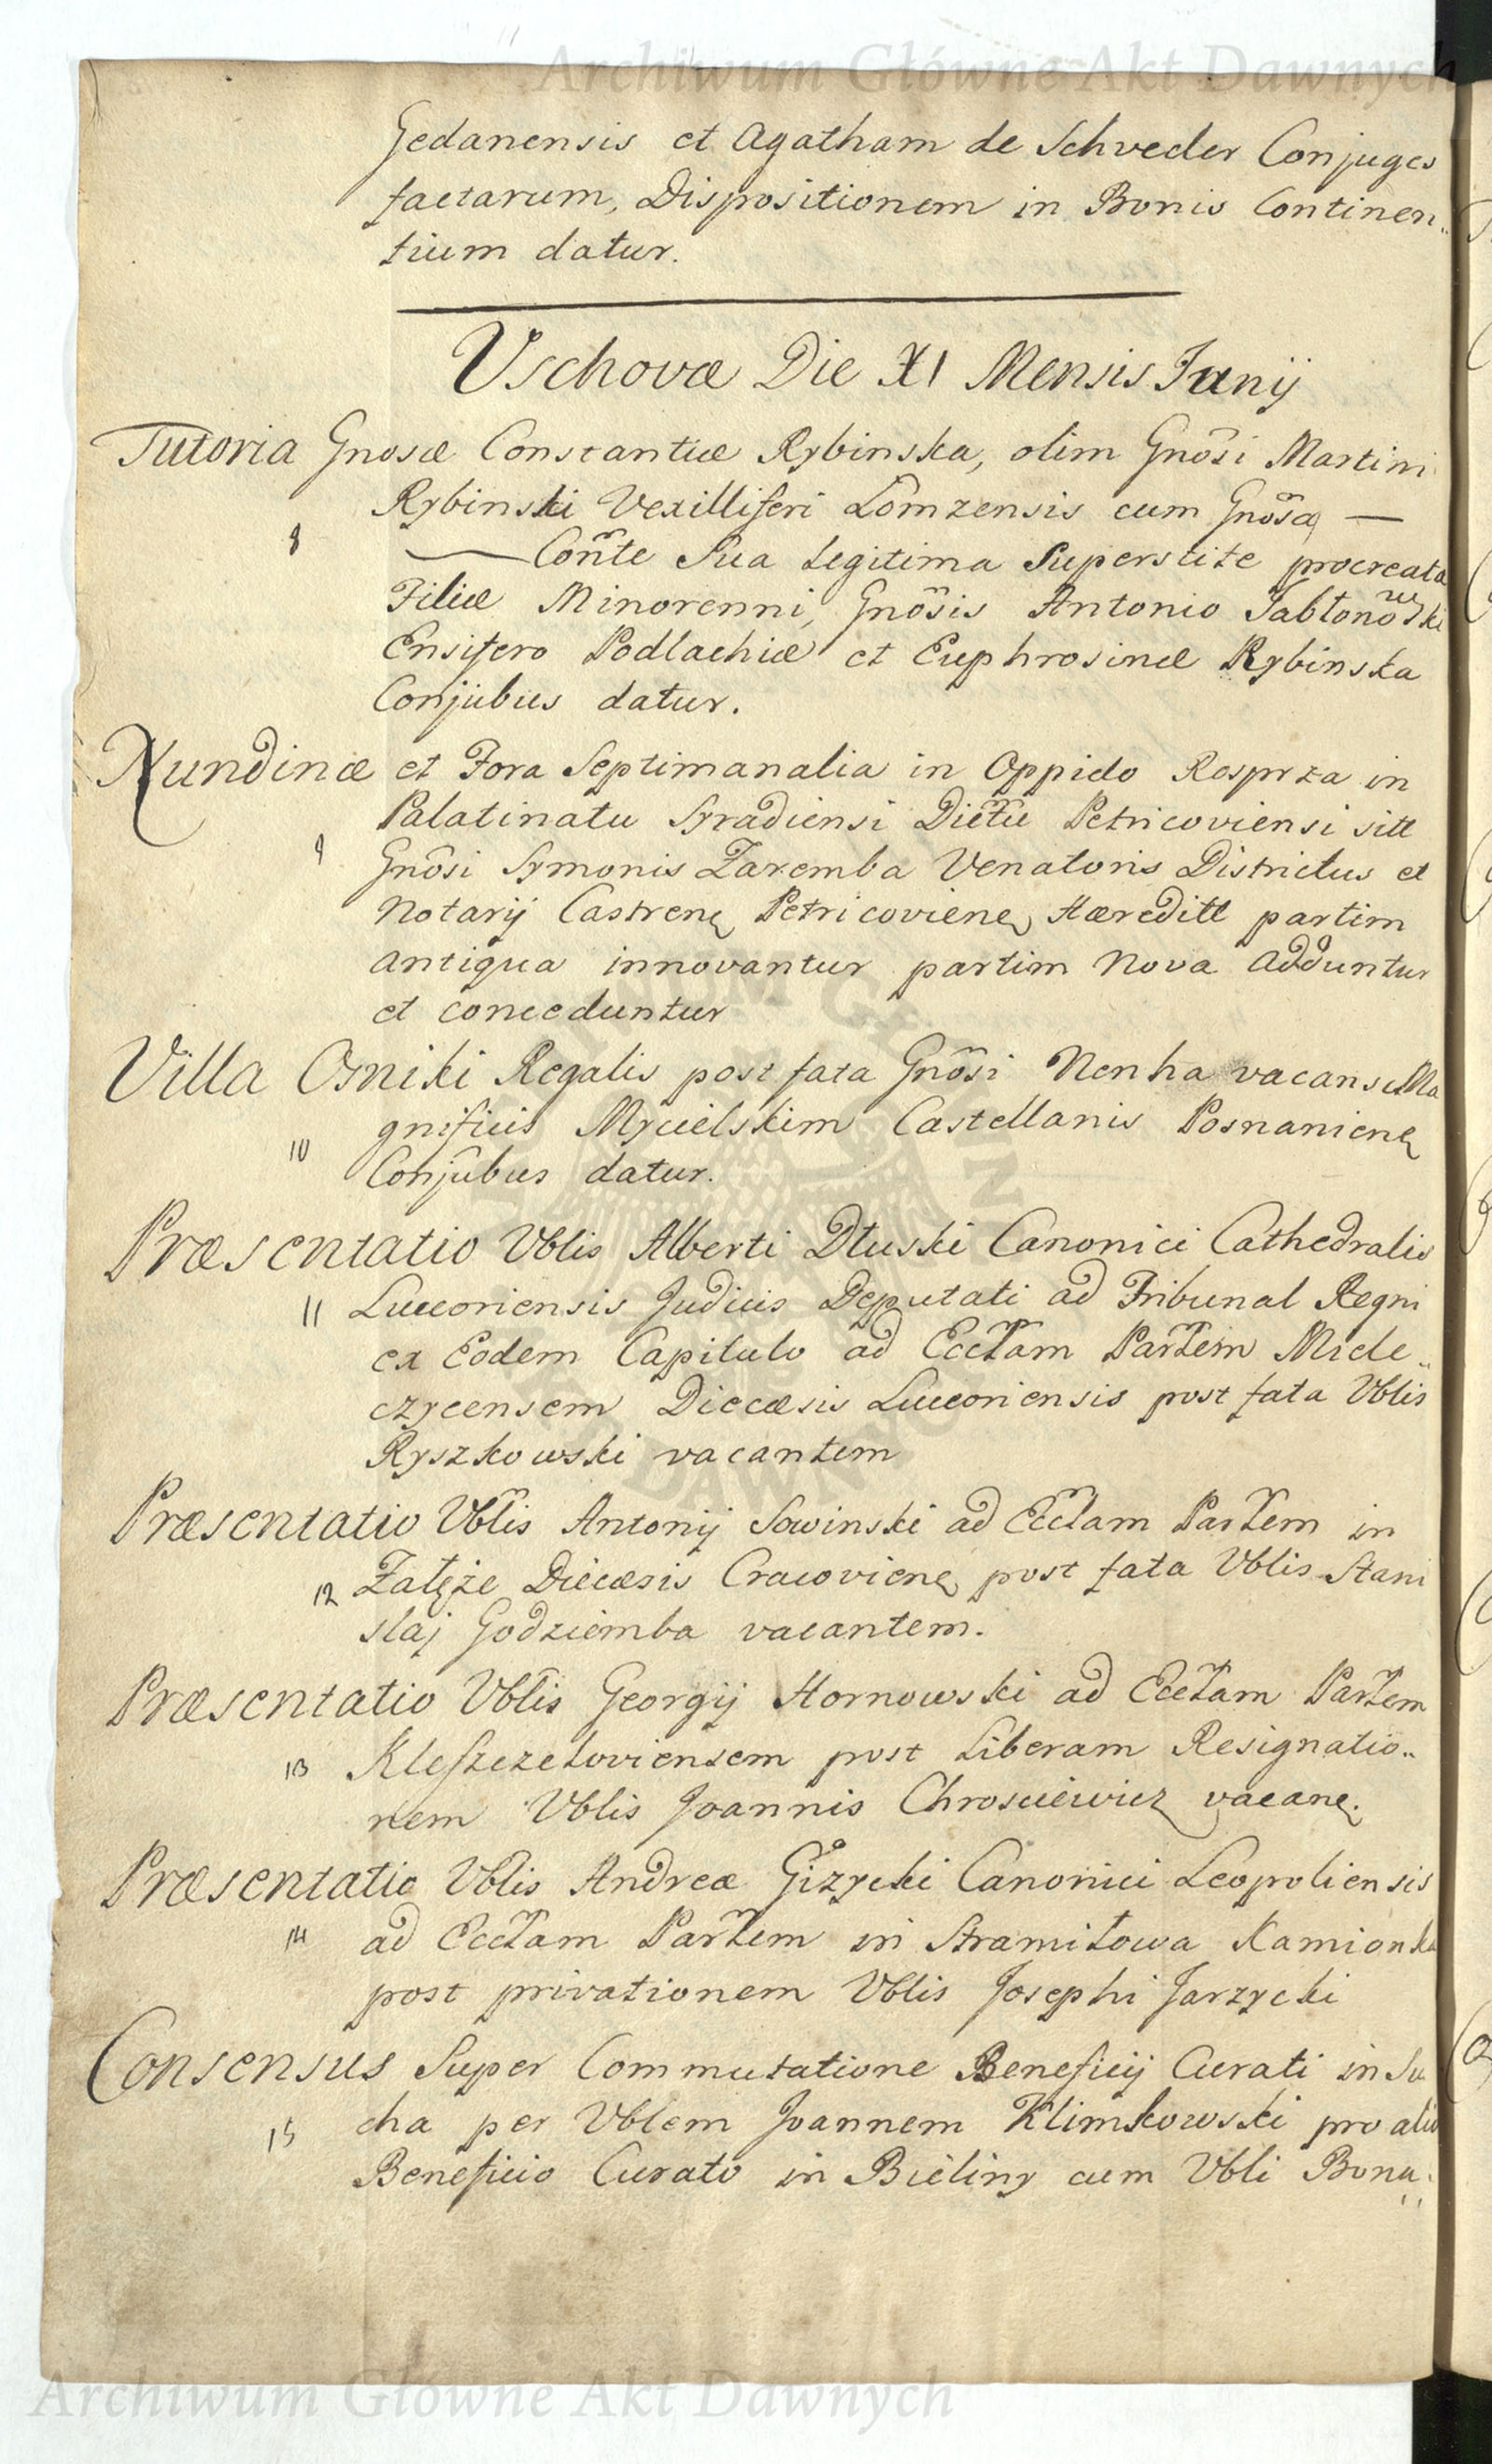 Archiwum Główne Akt Dawnych
Gedanensis et Agatham de Schveder Conjuges
factarum, Dispositionem in Bonis Continen„
tium datur.
Vschovæ Die XI Mensis Junij
Tutoria Gnosæ Constantiæ Rybinska, olim Gnõsi Martini
Rybinski Vexilliferi Lomzensis cum Gnõsa —
8 — Con̄te Sua Legitima Superstite procreata
Filiæ Minorenni, Gnõsis Antonio Jabłonowski
Ensifero Podlachiæ et Euphrosinæ Rybinska
Conjubus datur.
Nundinæ et Fora Septimanalia in Oppido Rosprza in
Palatinatu Syradiensi Dictu Petricoviensi sitt
9 Gnõsi Symonis Zaremba Venatoris Districtus et
Notarij Castrenę Petricovienę Hæreditt partim
antiqua innovantur partim Nova adduntur
et conceduntur
Villa Osniki Regalis post fata Gnõsi Nenha vacans Ma
gnificis Mycielskim Castellanis Posnanienę
10 Conjũbus datur.
Præsentatio Vblis Alberti Dłuski Canonici Cathedralis
11 Lucceoriensis Judicis Deputati ad Tribunal Regni
ex Eodem Capitulo ad Ecctam Partem Miele„
czycensem Diecæsis Lucceoriensis post fata Vblis
Ryszkowski vacantem
Præsentatio Vblis Antonij Sowinski ad Ecctam Partem in
12 Załęże Diecæsis Cracovienę post fata Vblis Stani
slaj Godziemba vacantem.
Præsentatio Vblis Georgij Hornowski ad Ecctam Partem
13 Kleszczeloviensem post Liberam Resignatio„
nem Vblis Joannis Chrosciewicz vacanę.
Præsentatio Vblis Andreæ Giżycki Canonici Leopoliensis
14 ad Ecctam Partem in Stramiłowa Kamionka
post privationem Vblis Josephi Jarzycki
Consensus Super Commutatione Beneficij Curati in Su
15 cha per Vblem Joannem Klimkowski pro alio
Beneficio Curato in Bieliny cum Vbli Bona„
Archiwum Główne Akt Dawnych